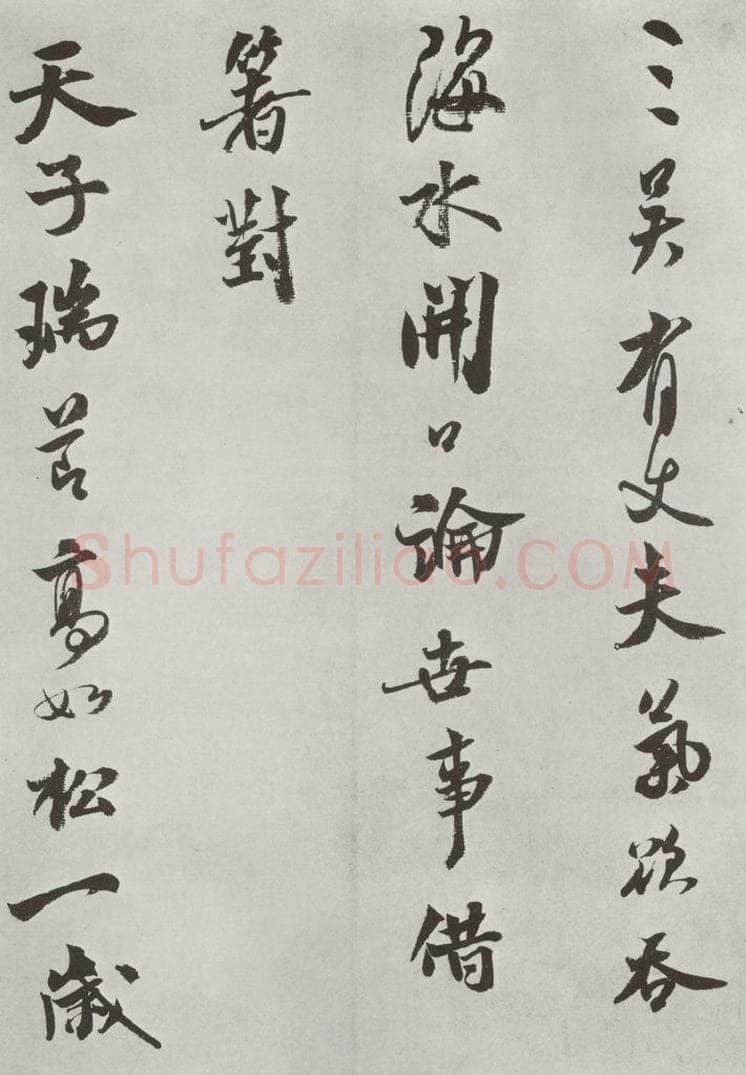 三吳有丈夫氣欲吞
海水開口論世事借
箸對
天子瑞節高如松一歲
Shufaziliao.COM